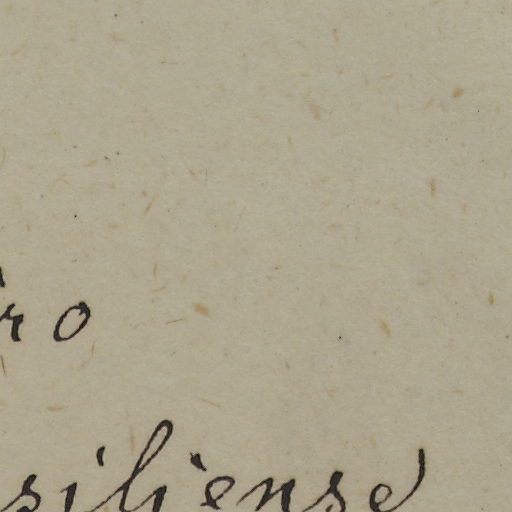 ro
siliense